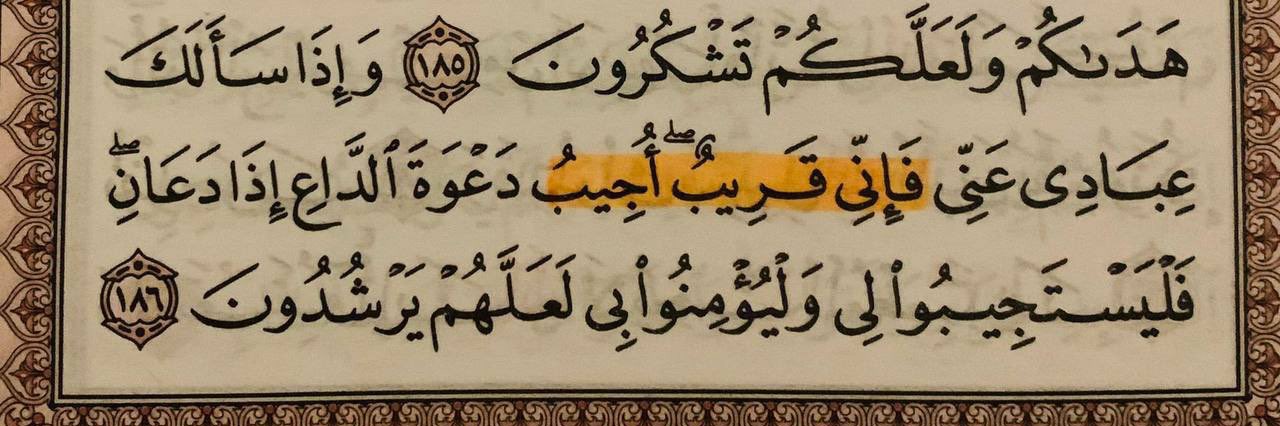 هَدَىٰكُمْ وَلَعَلَّكُمْ تَشْكُرُونَ ١٨٥ وَإِذَا سَأَلَكَ
عِبَادِى عَنِّى فَإِنِّى قَرِيبٌ ۖ أُجِيبُ دَعْوَةَ ٱلدَّاعِ إِذَا دَعَانِ ۖ
فَلْيَسْتَجِيبُوا۟ لِى وَلْيُؤْمِنُوا۟ بِى لَعَلَّهُمْ يَرْشُدُونَ ١٨٦